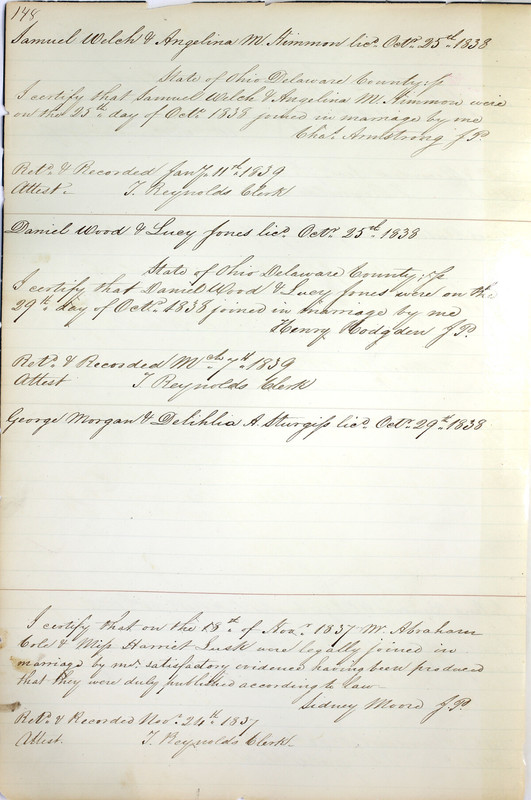 148
Samuel Welch & Angelina M. Stimmon licd. Octr. 25th 1838
State of Ohio Delaware County Ss
I certify that Samuel Welch & Angelina M. Stimmon were
on the 25th day of Octr. 1838 joined in marriage by me
Chas. Armstrong J.P.
Retd. & Recorded Jany. 11th 1839
Attest. T. Reynolds Clerk
Daniel Wood & Lucy Jones licd. Octr. 25th 1838
State of Ohio Delaware County, Ss
I certify that Daniel Wood & Lucy Jones were on the
29th day of Octr. 1838 joined in marriage by me
Henry Hodgden J.P.
Retd. & Recorded Mch. 7th 1839
Attest T Reynolds Clerk
George Morgan & Delihlia A. Sturgiss licd. Octr. 29th 1838
I certify that on the 18th of Novr. 1837 Mr. Abraham
Cole & Miss Harriet Lusk were legally joined in
marriage by me. satisfactory evidence having been produced
that they were duly published according to law
Sidney Moore J.P.
Retd. & Recorded Novr. 24th 1837
Attest. T. Reynolds Clerk